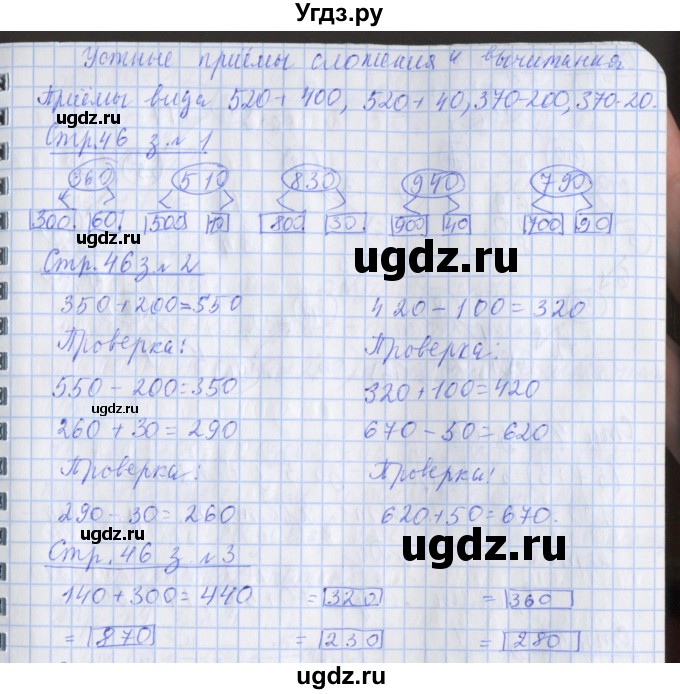 Угдз.ру
Устные приёмы сложения и вычитания.
Приёмы вида 520+400, 520+40, 370-200, 370-20.
ugdz.ru
Стр.46 з №1
360 510 830 940 790
300 60 500 10 800 30 900 40 700 90
ugdz.ru
Стр.46 з №2
350+200=550 420-100=320
ugdz.ru
Проверка: Проверка:
550-200=350 320+100=420
ugdz.ru
260+30=290 670-50=620
Проверка: Проверка:
290-30=260 620+50=670.
ugdz.ru
ugdz.ru
Стр.46 з №3
140+300=440 =320 =360
=870 =230 =280
ugdz.ru